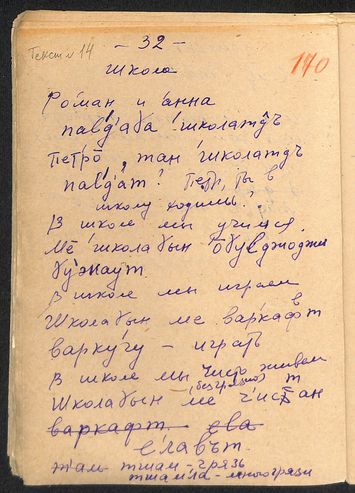 Текст 14
- 32 -
170
школа
Роман и анна
павд'аба школатдъ
Петрō, тан школатдъ
павд'ат? Петр, ты в
школу ходишь?
В школе мы учимся.
Мē школабын
бӯжаут.
В школе мы играем
Школабын ме варкафт
варку'гу – играть
В школе мы чисто живем
(без грязно)
Школабын ме чистан
варкафт. ева
елавът.
жам тшам - грязь
тшамла - много грязи